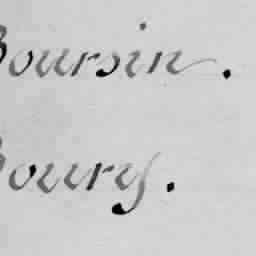 Boursin.
Boury.